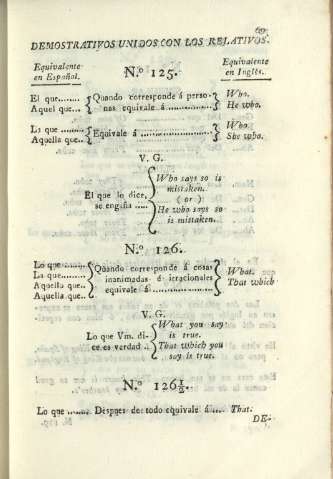 69
DEMOSTRATIVOS UNIDOS CON LOS RELATIVOS.
Equivalente en Español.
N.º 125.
Equivalente en Inglés.
El que........
Aquel que...
Quando corresponde á perso-
nas equivale á ..................
Who.
He who.
La que ........
Aquella que..
Equivale á ......................
Who.
She who.
V. G.
El que lo dice,
se engaña .....
Who says so is
mistaken.
( or )
He who says so
is mistaken.
N.º 126.
Lo que ........
La que.........
Aquello que..
Aquella que..
Quando corresponde á cosas
inanimadas ó irracionales
equivale á:.....................
What.
That which
V. G.
Lo que Vm. di-
ce es verdad ..
What you say
is true.
That which you
say is true.
N.º 126½.
Lo que ....... Despues de todo equivale á.... That.
DE-